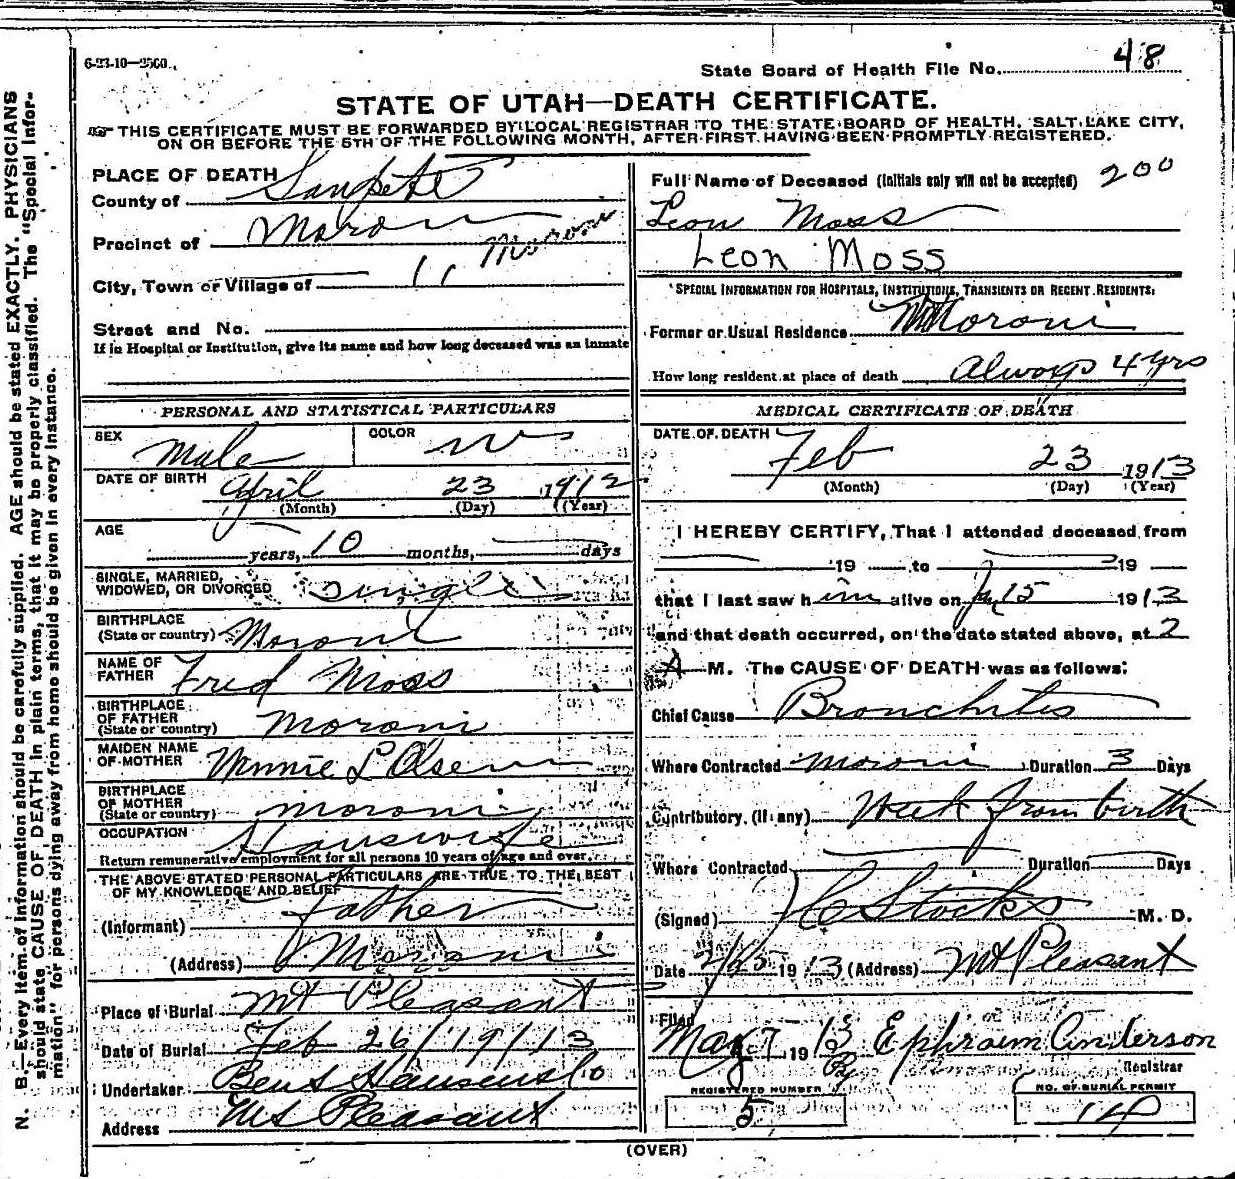 6-23-10—2500.
State Board of Health File No. 48
STATE OF UTAH—DEATH CERTIFICATE.
THIS CERTIFICATE MUST BE FORWARDED BY LOCAL REGISTRAR TO THE STATE BOARD OF HEALTH, SALT LAKE CITY,
ON OR BEFORE THE 5TH OF THE FOLLOWING MONTH, AFTER FIRST HAVING BEEN PROMPTLY REGISTERED.
PLACE OF DEATH
County of Sanpete
Precinct of Moroni
City, Town or Village of " Moroni
Street and No.
If in Hospital or Institution, give its name and how long deceased was an inmate
Full Name of Deceased (Initials only will not be accepted) 200
Leon Moss
Leon Moss
SPECIAL INFORMATION FOR HOSPITALS, INSTITUTIONS, TRANSIENTS OR RECENT RESIDENTS:
Former or Usual Residence Moroni
How long resident at place of death Always 4 yrs
PERSONAL AND STATISTICAL PARTICULARS
SEX Male COLOR W
DATE OF BIRTH April 23 1912
(Month) (Day) (Year)
AGE
years, 10 months, days
SINGLE, MARRIED,
WIDOWED, OR DIVORCED Single
BIRTHPLACE
(State or country) Moroni
NAME OF
FATHER Fred Moss
BIRTHPLACE
OF FATHER
(State or country) Moroni
MAIDEN NAME
OF MOTHER Minnie L Olsen
BIRTHPLACE
OF MOTHER
(State or country) Moroni
OCCUPATION Hauswife
Return remunerative employment for all persons 10 years of age and over
THE ABOVE STATED PERSONAL PARTICULARS ARE TRUE TO THE BEST
OF MY KNOWLEDGE AND BELIEF
(Informant) Father
(Address) Moroni
Place of Burial Mt Pleasant
Date of Burial Feb 26/1913
Undertaker
Address Mt Pleasant
MEDICAL CERTIFICATE OF DEATH
DATE OF DEATH Feb 23 1913
(Month) (Day) (Year)
I HEREBY CERTIFY, That I attended deceased from
19 to 19
that I last saw him alive on Jan 15 1913
and that death occurred, on the date stated above, at 2
A M. The CAUSE OF DEATH was as follows:
Chief Cause Bronchites
Where Contracted Moroni Duration 3 Days
Contributory (If any) Weak from birth
Where Contracted Duration Days
(Signed) Stocks M. D.
Date 2/25 1913 (Address) Mt Pleasant
Filed
May 7 1913 Ephraim Anderson
Registrar
REGISTERED NUMBER
5
NO. OF BURIAL PERMIT
14
(OVER)
N. B.—Every item of information should be carefully supplied. AGE should be stated EXACTLY. PHYSICIANS
should state CAUSE OF DEATH in plain terms, that it may be properly classified. The "Special Infor-
mation" for persons dying away from home should be given in every instance.